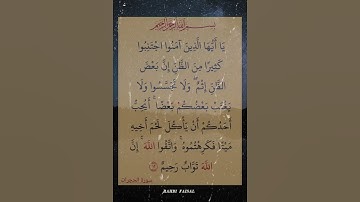 بسم الله الرحمن الرحيم
يَا أَيُّهَا الَّذِينَ آمَنُوا اجْتَنِبُوا
كَثِيرًا مِنَ الظَّنِّ إِنَّ بَعْضَ
الظَّنِّ إِثْمٌ ۖ وَلَا تَجَسَّسُوا وَلَا
يَغْتَبْ بَعْضُكُمْ بَعْضًا ۚ أَيُحِبُّ
أَحَدُكُمْ أَنْ يَأْكُلَ لَحْمَ أَخِيهِ
مَيْتًا فَكَرِهْتُمُوهُ ۚ وَاتَّقُوا اللَّهَ ۚ إِنَّ
اللَّهَ تَوَّابٌ رَحِيمٌ
سورة الحجرات
FAISAL